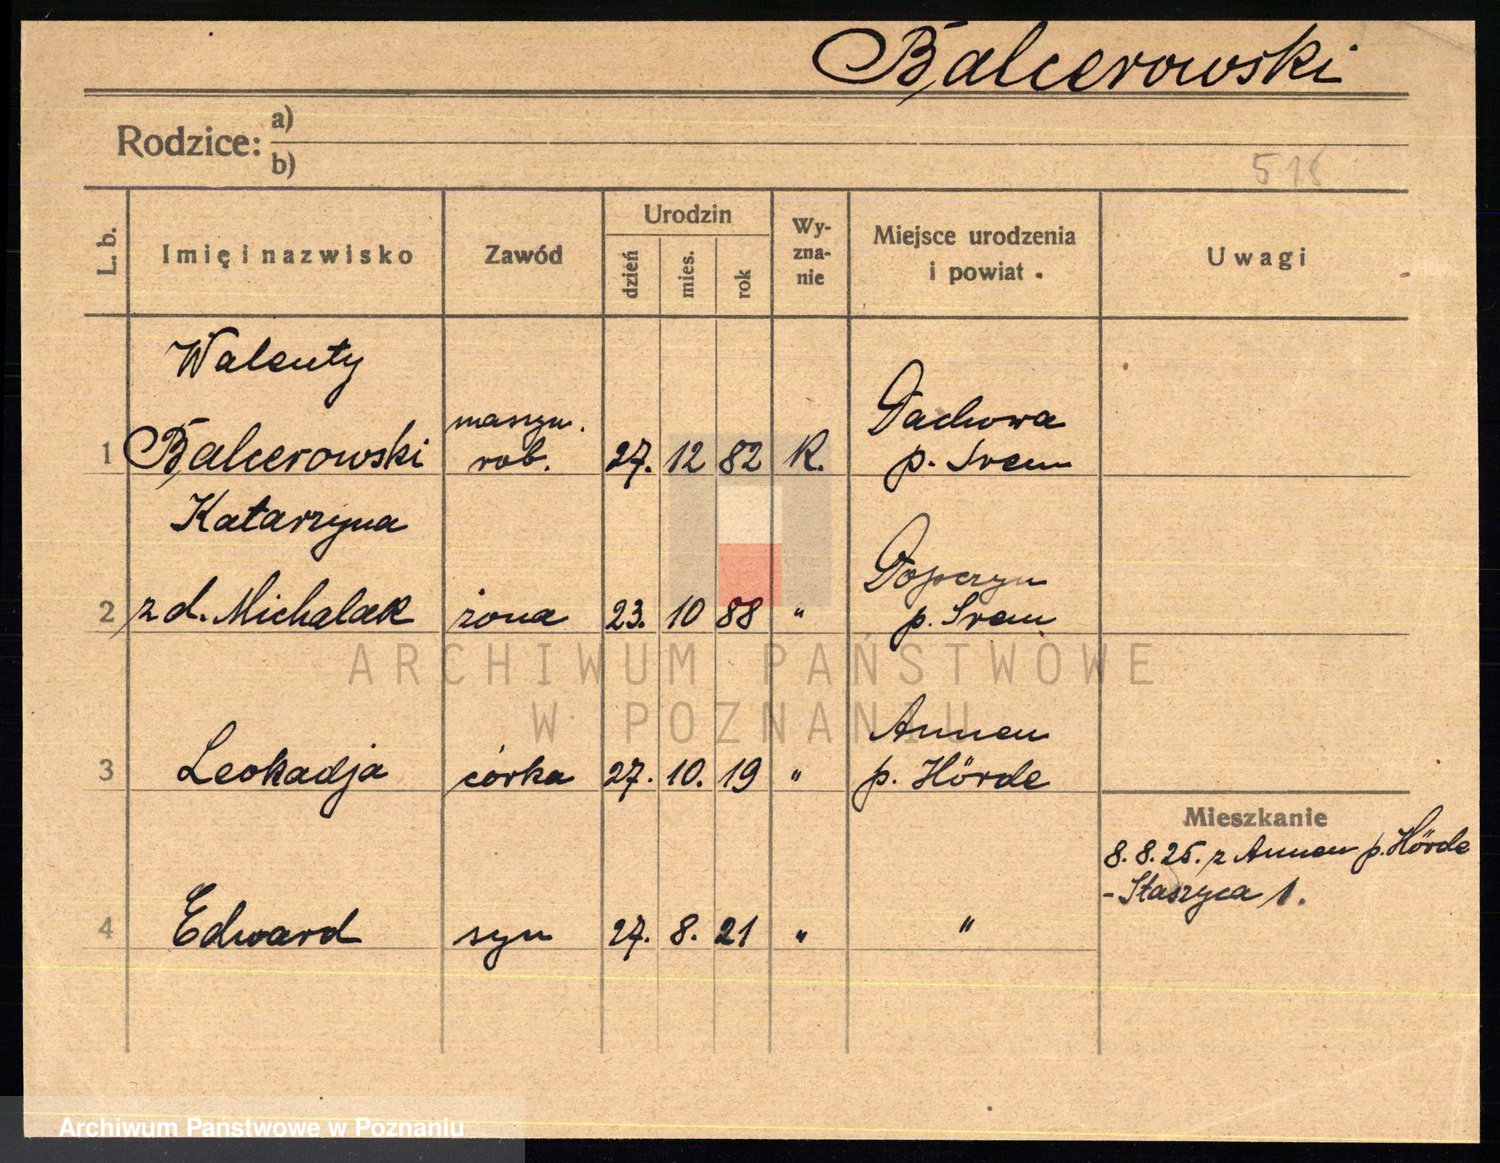 Balcerowski
Rodzice: a)
b)
518
L. b.
Imię i nazwisko
Zawód
Urodzin
dzień
mies.
rok
Wy-
zna-
nie
Miejsce urodzenia
i powiat
Uwagi
Walenty
1 Balcerowski maszyn. rob. 27. 12 82 R. Dachowa p. Śrem
Katarzyna
2 z d. Michalak żona 23. 10 88 " p. Śrem
3 Leokadja córka 27. 10. 19 " Annen p. Hörde
Mieszkanie
8. 8. 25. z Annen p. Hörde
- Staszyca 1.
4 Edward syn 27. 8. 21 " "
ARCHIWUM PAŃSTWOWE
W POZNANIU
Archiwum Państwowe w Poznaniu